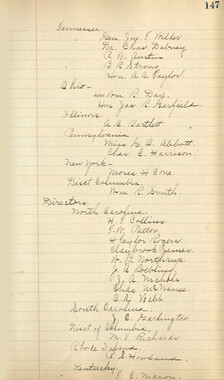 147
Tennessee
Gen. Jno. T. Wilder
Dr. Chas Dabney
A. W. Austin
B. R. Strong
Hon. A. A. Taylor.
Ohio-
Hon Wm. R. Day.
Hon Jas R. Garfield.
Illinois
A. C. Bartlett
Pennsylvania
Miss G. O. Abbott.
Chas. C. Harrison.
New York-
Moses H Cone
Dist Columbia,
Wm R. Smith.
Directors
North Carolina,
H. T. Collins
T. W. Patton,
H Taylor Rogers
Claybrook James.
W. P. Northrup.
J. A.
J. A. Nichols
Chas McNamee
C. A. Webb
South Carolina,
J. C. Garlington
Dist of Columbia,
M. V. Richards
Rhode Island,
Kentucky,
Mason